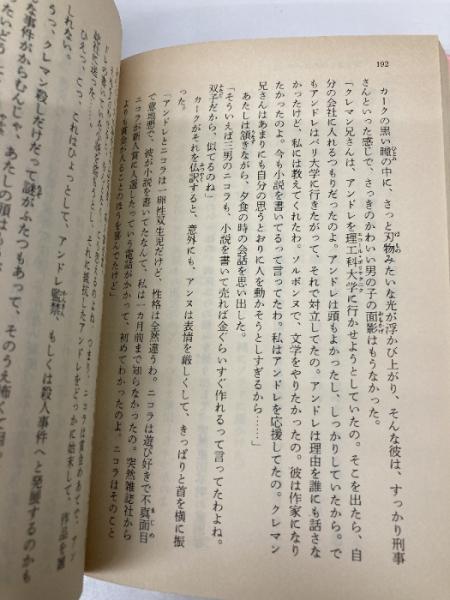 192
カークの黒い瞳の中に、さっと刃物みたいな光が浮かび上がり、そんな彼は、すっかり刑事
さんといった感じで、さっきのかわいい男の子の面影はもうなかった。
「クレマン兄さんは、アンドレを理工科大学に行かせようとしていたの。そこを出たら、自
分の会社に入れるつもりだったのよ。アンドレは頭もよかったし、しっかりしていたから。で
もアンドレはパリ大学に行きたがって、それで対立してたの。アンドレは理由を誰にも話さな
かったけど、私には教えてくれたわ。ソルボンヌで、文学をやりたかったの。彼は作家になり
たかったのよ。今も小説を書いてるって言ってたわ。私はアンドレを応援してたの。クレマン
兄さんはあまりにも自分の思うとおりに人を動かそうとしすぎるから……」
あたしは頷きながら、夕食の時の会話を思い出した。
「そういえば三男のニコラも、小説を書いて売れば金ぐらいすぐ作れるって言ってたわよね。
双子だから、似てるのね」
カークがそれを仏訳すると、意外にも、アンヌは表情を厳しくして、きっぱりと首を横に振
った。
「アンドレとニコラは一卵性双生児だけど、性格は全然違うわ。ニコラは遊び好きで不真面目
で意地悪で、彼が小説を書いてたなんて、私は一カ月前まで知らなかったの。突然雑誌社から
ニコラが新人賞に入選したっていう電話がかかって、初めてわかったのよ。ニコラはそのこと
よりも賞金が入ることのほうを喜んでたけど」
つまり、ニコラは賞金めあてで、アン
アンドレをどっかに始末して、作品を雑
ひえっ、こっ、これはひょっとして、アンドレ監禁、もしくは殺人事件へと発展するのかも
しれない。
うっ、クレマン殺しだけだって謎がふたつもあって、そのうえ怖くて
な事件がからむんじゃ、あたしの頭は